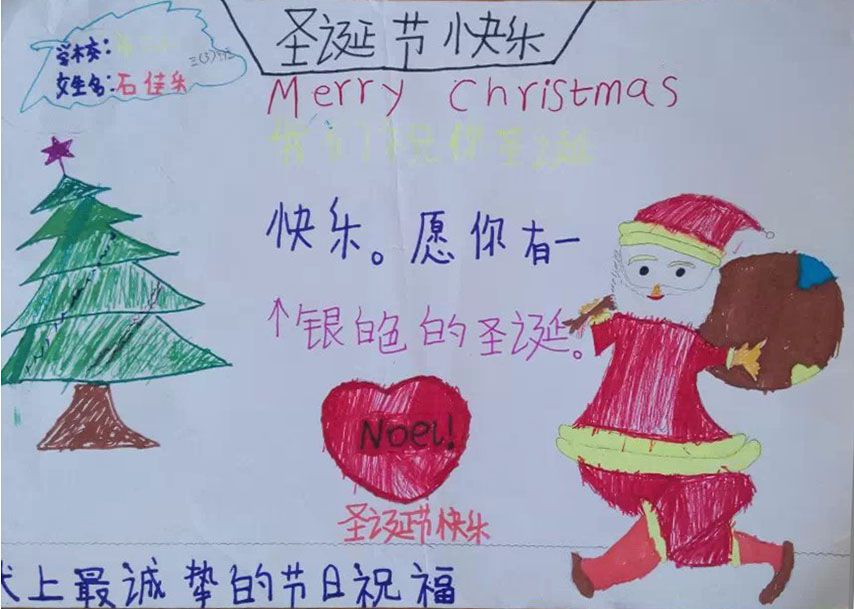 学校:
姓名:石佳乐
圣诞节快乐
Merry Christmas
祝你圣诞
快乐。愿你有一
个银白色的圣诞。
Noel!
圣诞节快乐
上最诚挚的节日祝福